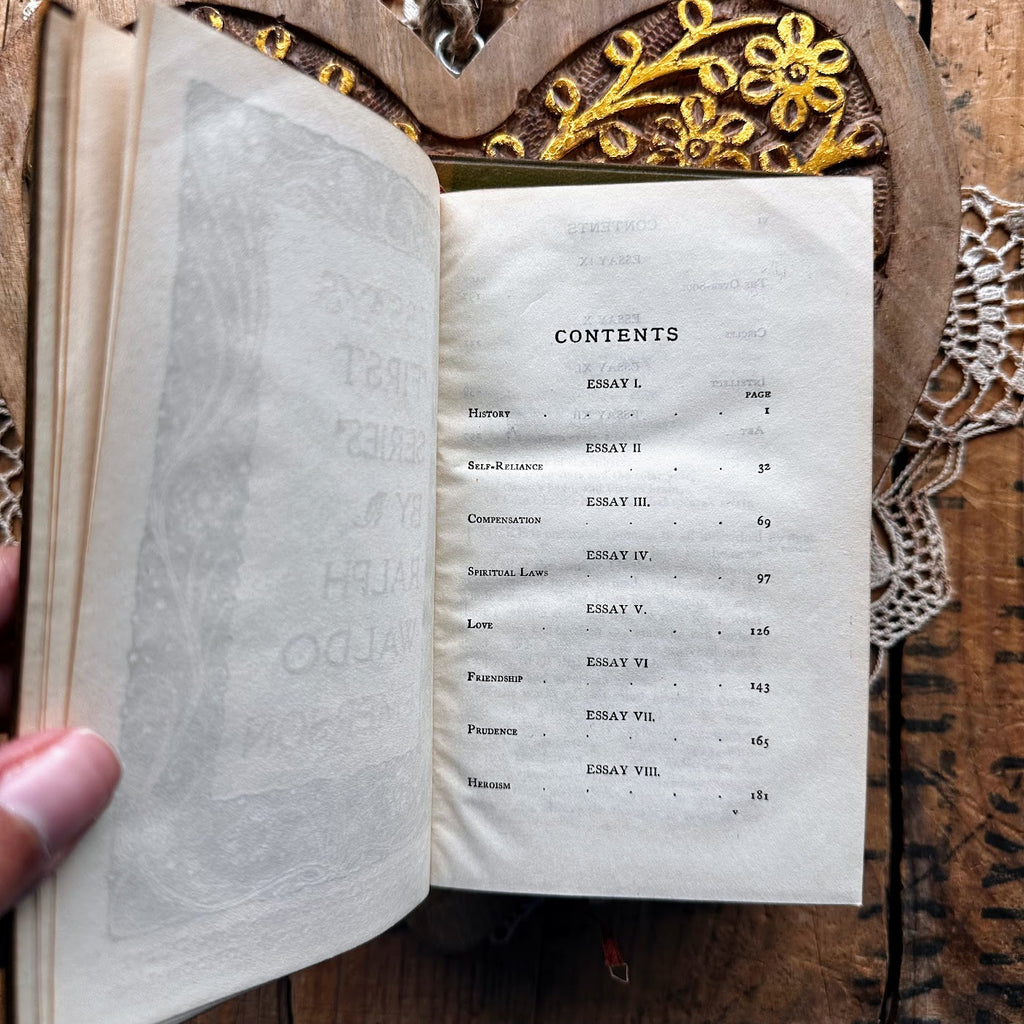 CONTENTS
ESSAY I.
PAGE
HISTORY 1
ESSAY II
SELF-RELIANCE 32
ESSAY III.
COMPENSATION 69
ESSAY IV.
SPIRITUAL LAWS 97
ESSAY V.
LOVE 126
ESSAY VI
FRIENDSHIP 143
ESSAY VII.
PRUDENCE 165
ESSAY VIII.
HEROISM 181
v